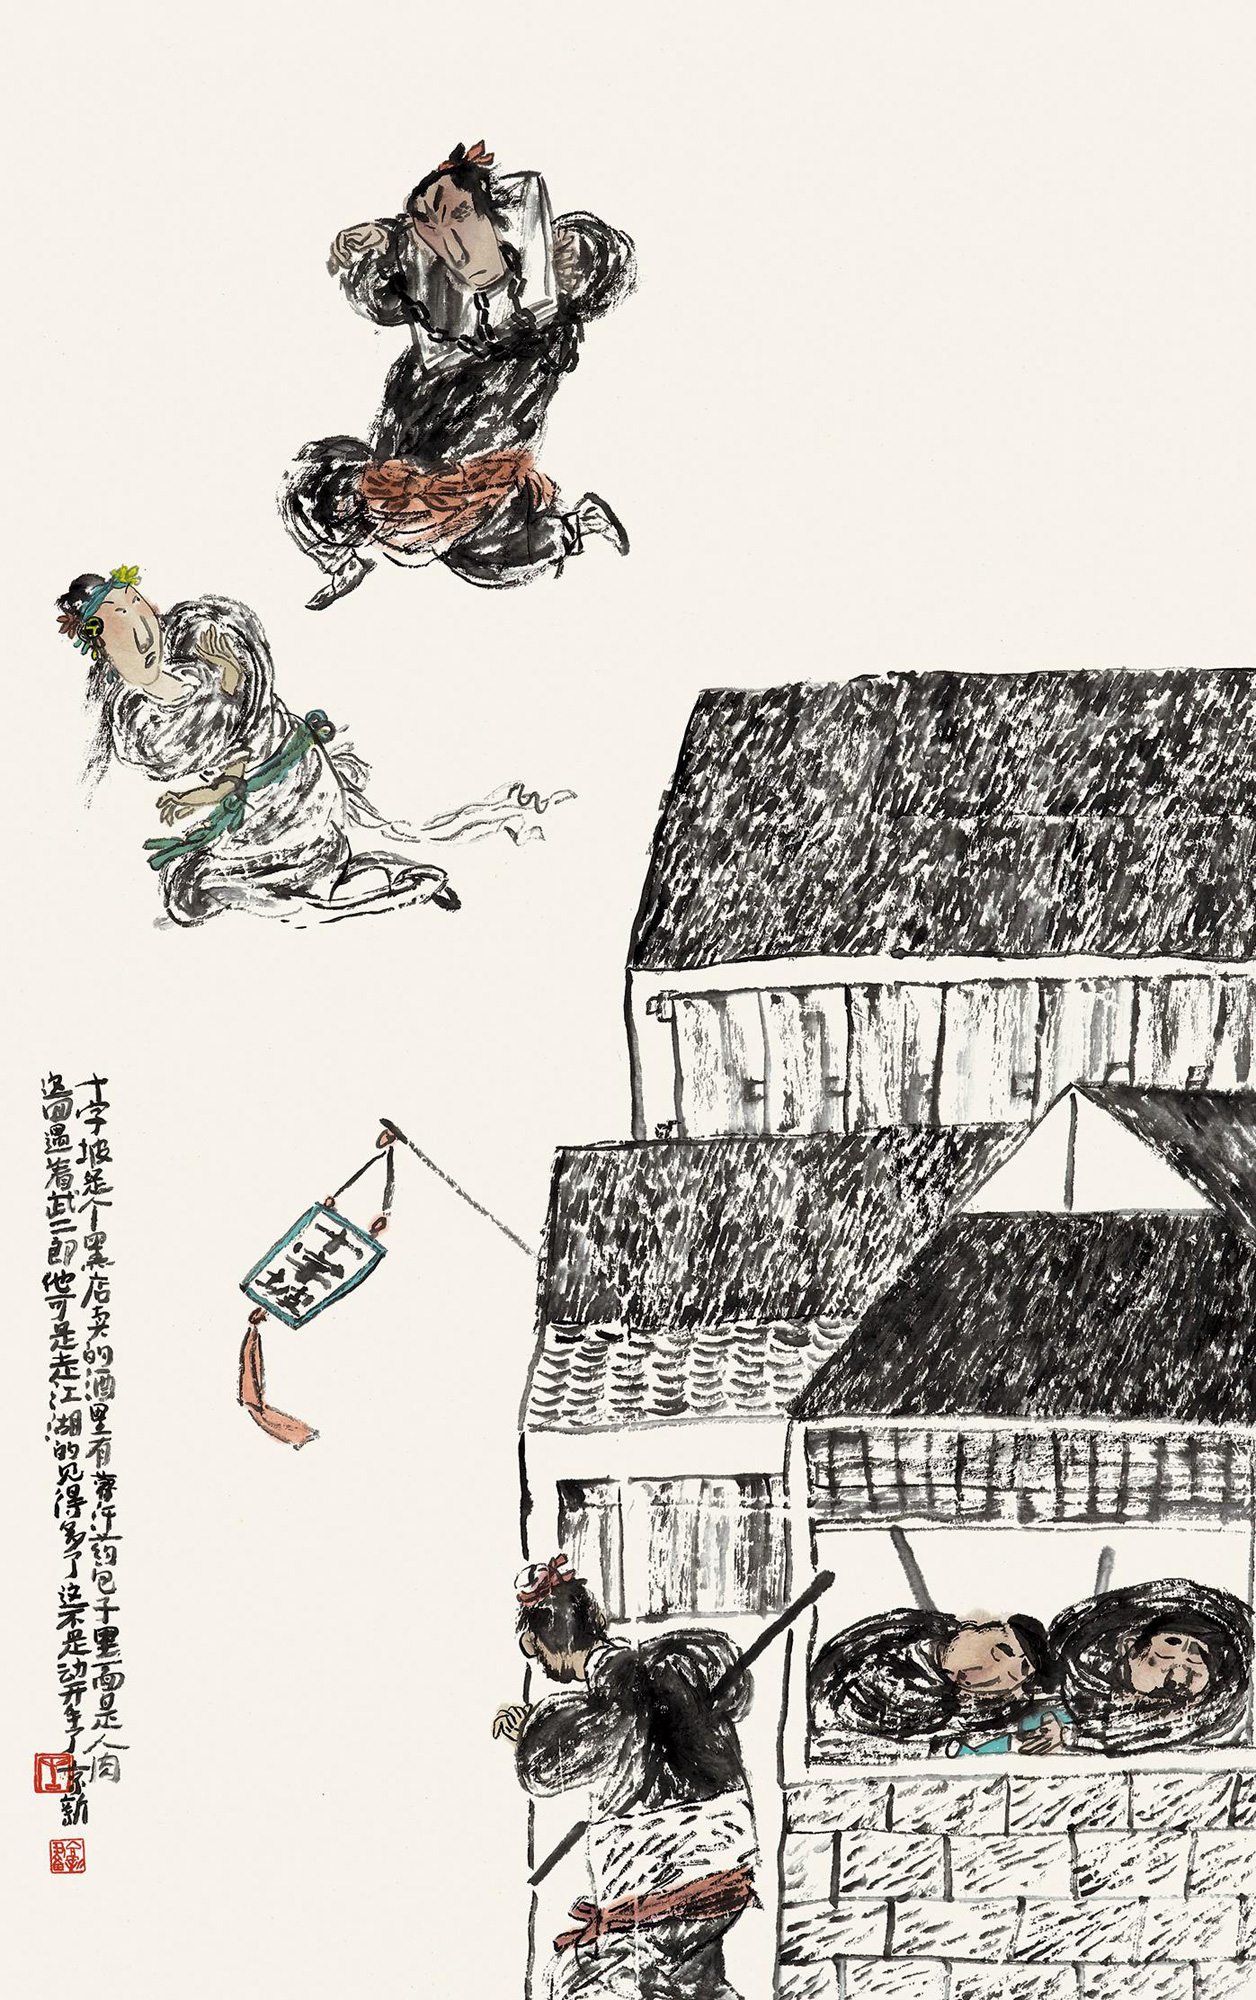 十字坡是个黑店卖的酒里有蒙汗药包子里面是人肉
这回遇着武二郎他可是走江湖的见得多了这不是动开手了京新
十字坡